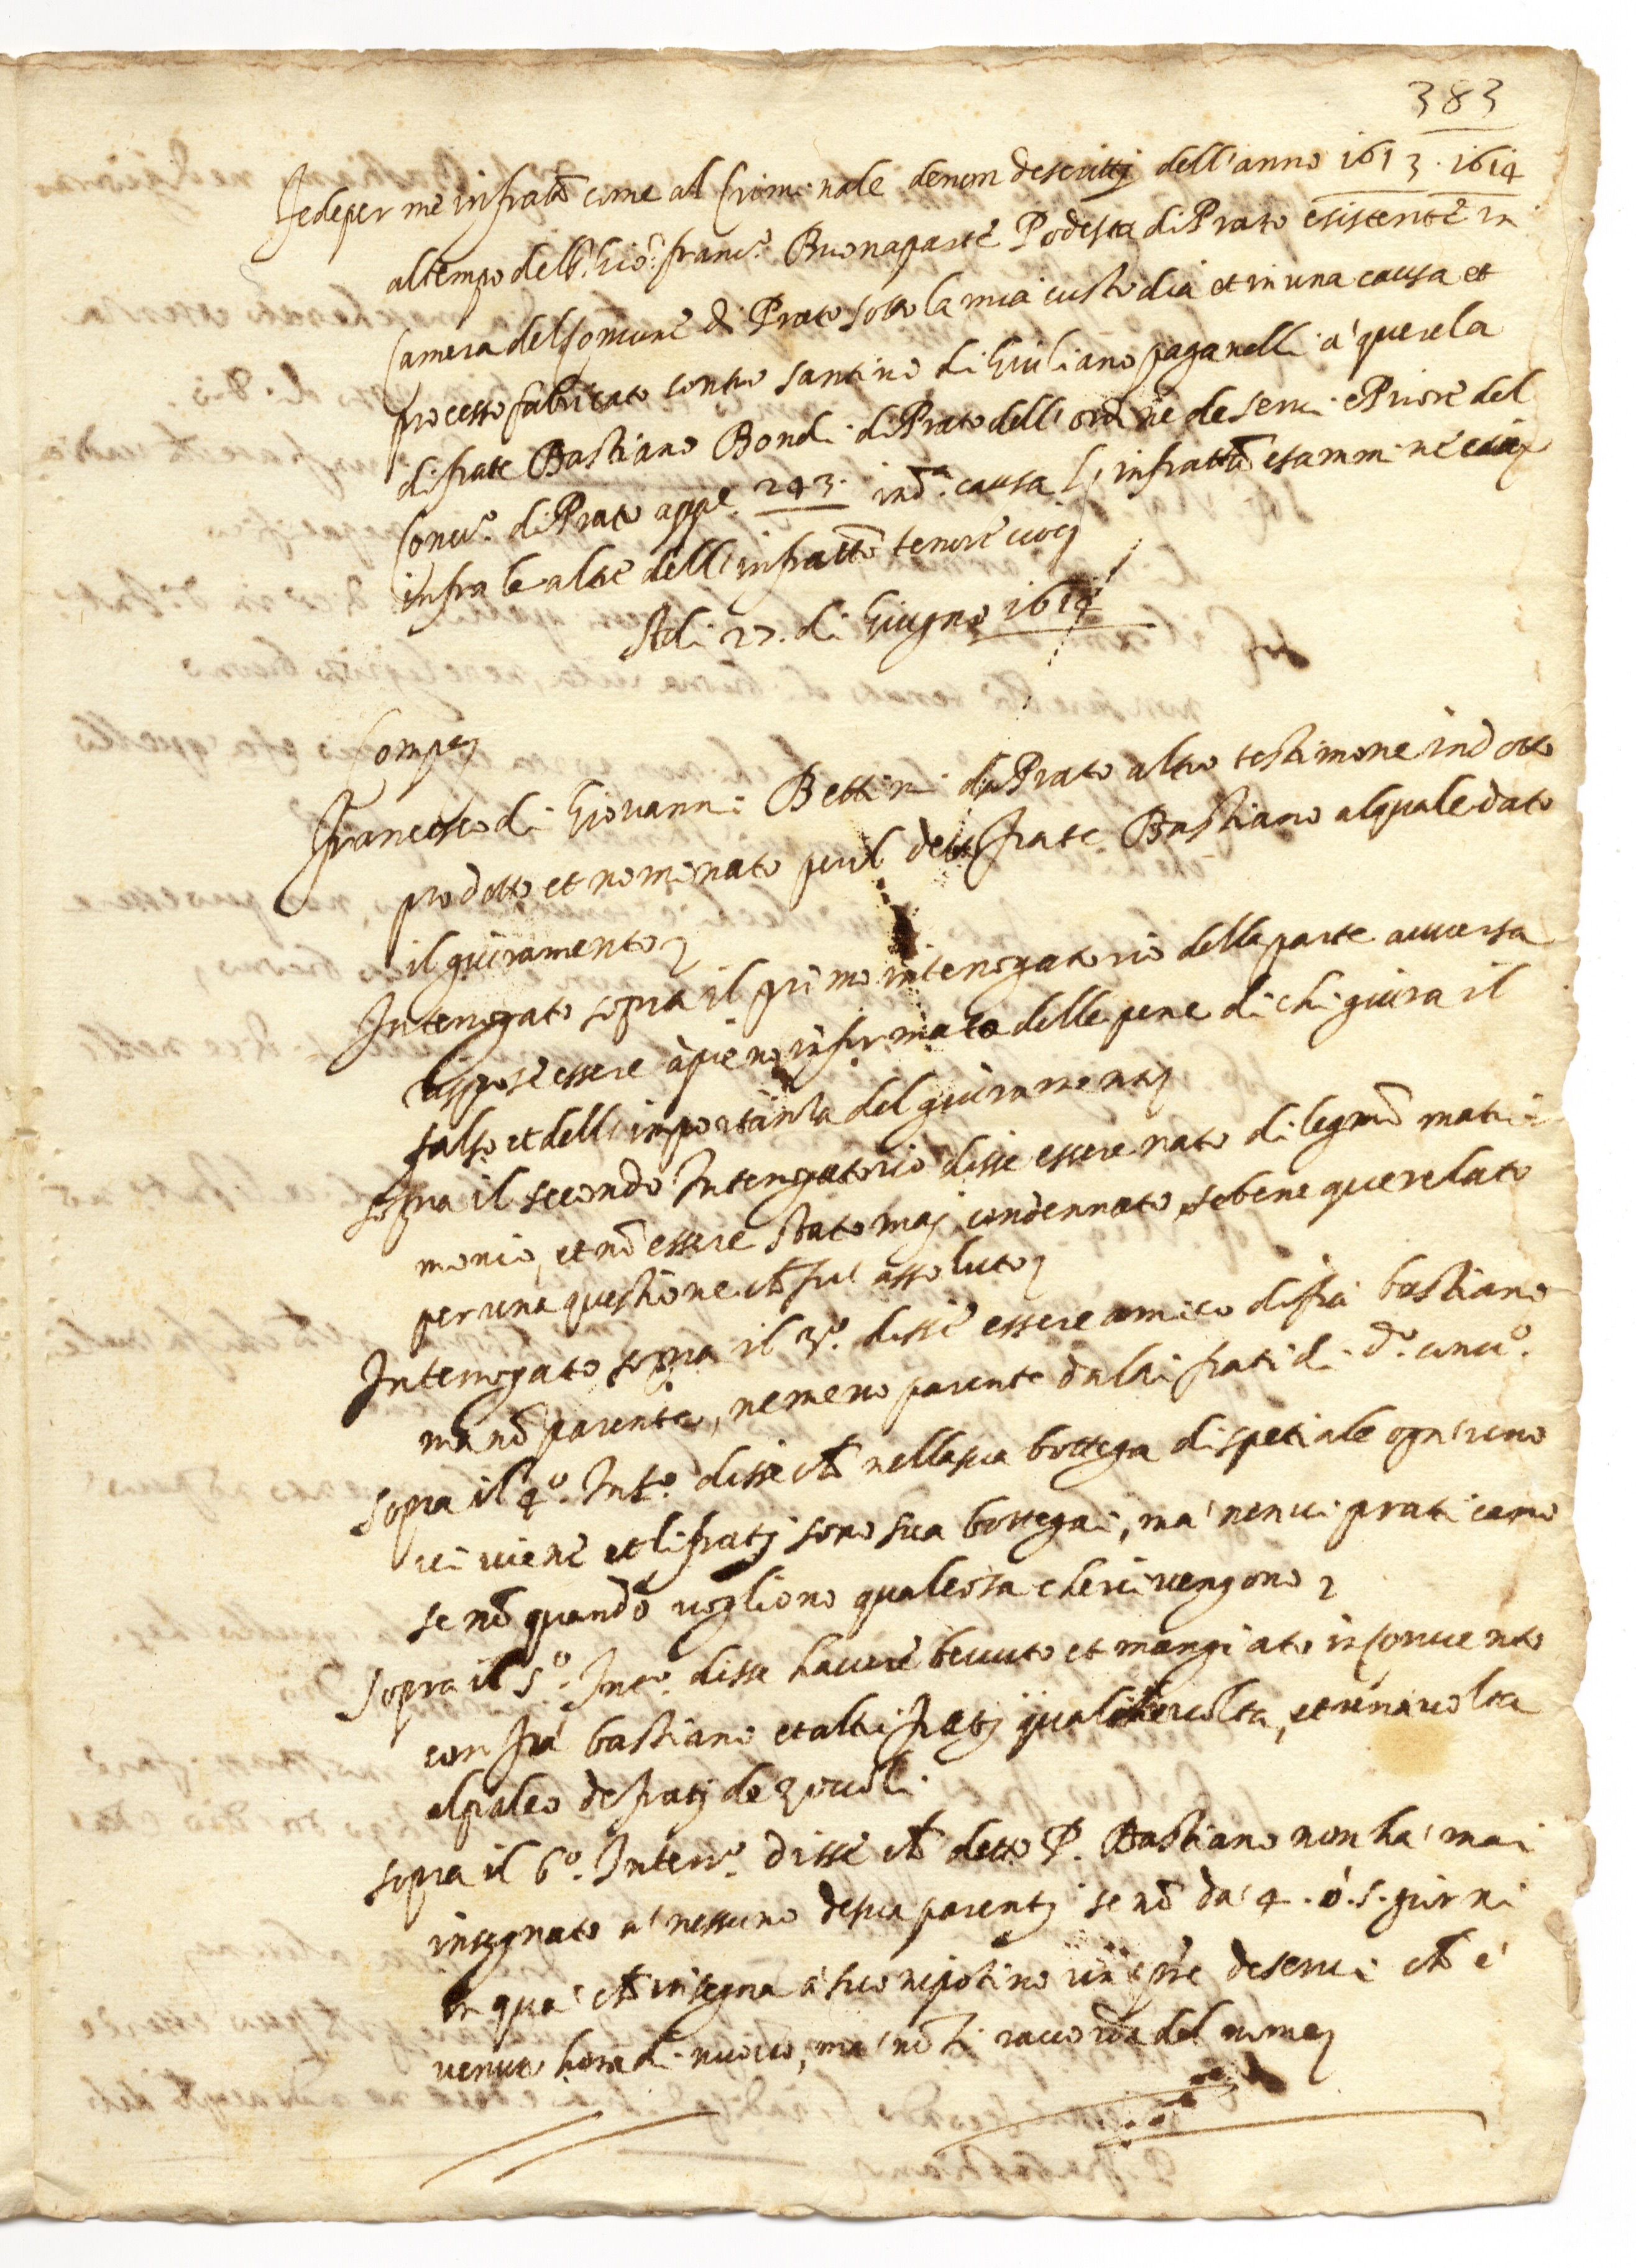 383
Fede per me infratto come al Criminale de non descritti dell'anno 1613. 1614
al tempo dell S. Gio: Franc.o Buonaparte Podesta di Prato esistente in
Camera del Comune di Prato sotto la mia custodia et in una causa et
processo fabricato contro Santino di Giuliano Paganelli a' querela
di frate Bastiano Bondi di Prato dell'ordine de servi e Priore del
Conv.o di Prato app.e 243. in d.a causa infratta esammine
infra le altre dell'infratto tenore cioe
Adi 27. di Giugno 1614
Comp.e
Francesco di Giovanni Bettini di Prato altro testimone indotto
prodotto et nominato per il detto frate Bastiano al quale dato
il giuramento
Interrogato sopra il primo interrogatorio della parte avversa
rispose essere a pieno informato delle pene di chi giura il
falso et dell'importanza del giuramento
sopra il secondo Interrogatorio disse essere nato di legmo matri
monio, et nō essere stato maj condennato, sebene querelato
per una questione chē fu' assoluto
Interrogato sopra il 3o. disse essere amico di fra bastiano
ma nō parente, ne meno parente d'altri frati di d.o conv.o
sopra il 4o. Into. disse chē nella sua bottega di spetiale ogn'uno
vi viene et li fratj sono sua bottegai, ma' non vi praticano
se nō quando vogliono qualcosa che vi vengono
sopra il 5o. Into. disse havere bevuto et mangiato in convento
con fra' bastiano et altri fratj qualche volta, et una volta
al palco de fratj de zoccoli
sopra il 6o. Interro. disse chē detto P. Bastiano non ha' mai
insegnato a' nessuno de sua parentj se nō da' 4. o' 5. giorni
in qua' chē insegna a' suo nipotino de servi chē e'
venuto hora di nuovo, ma' nō si raccorda del nome